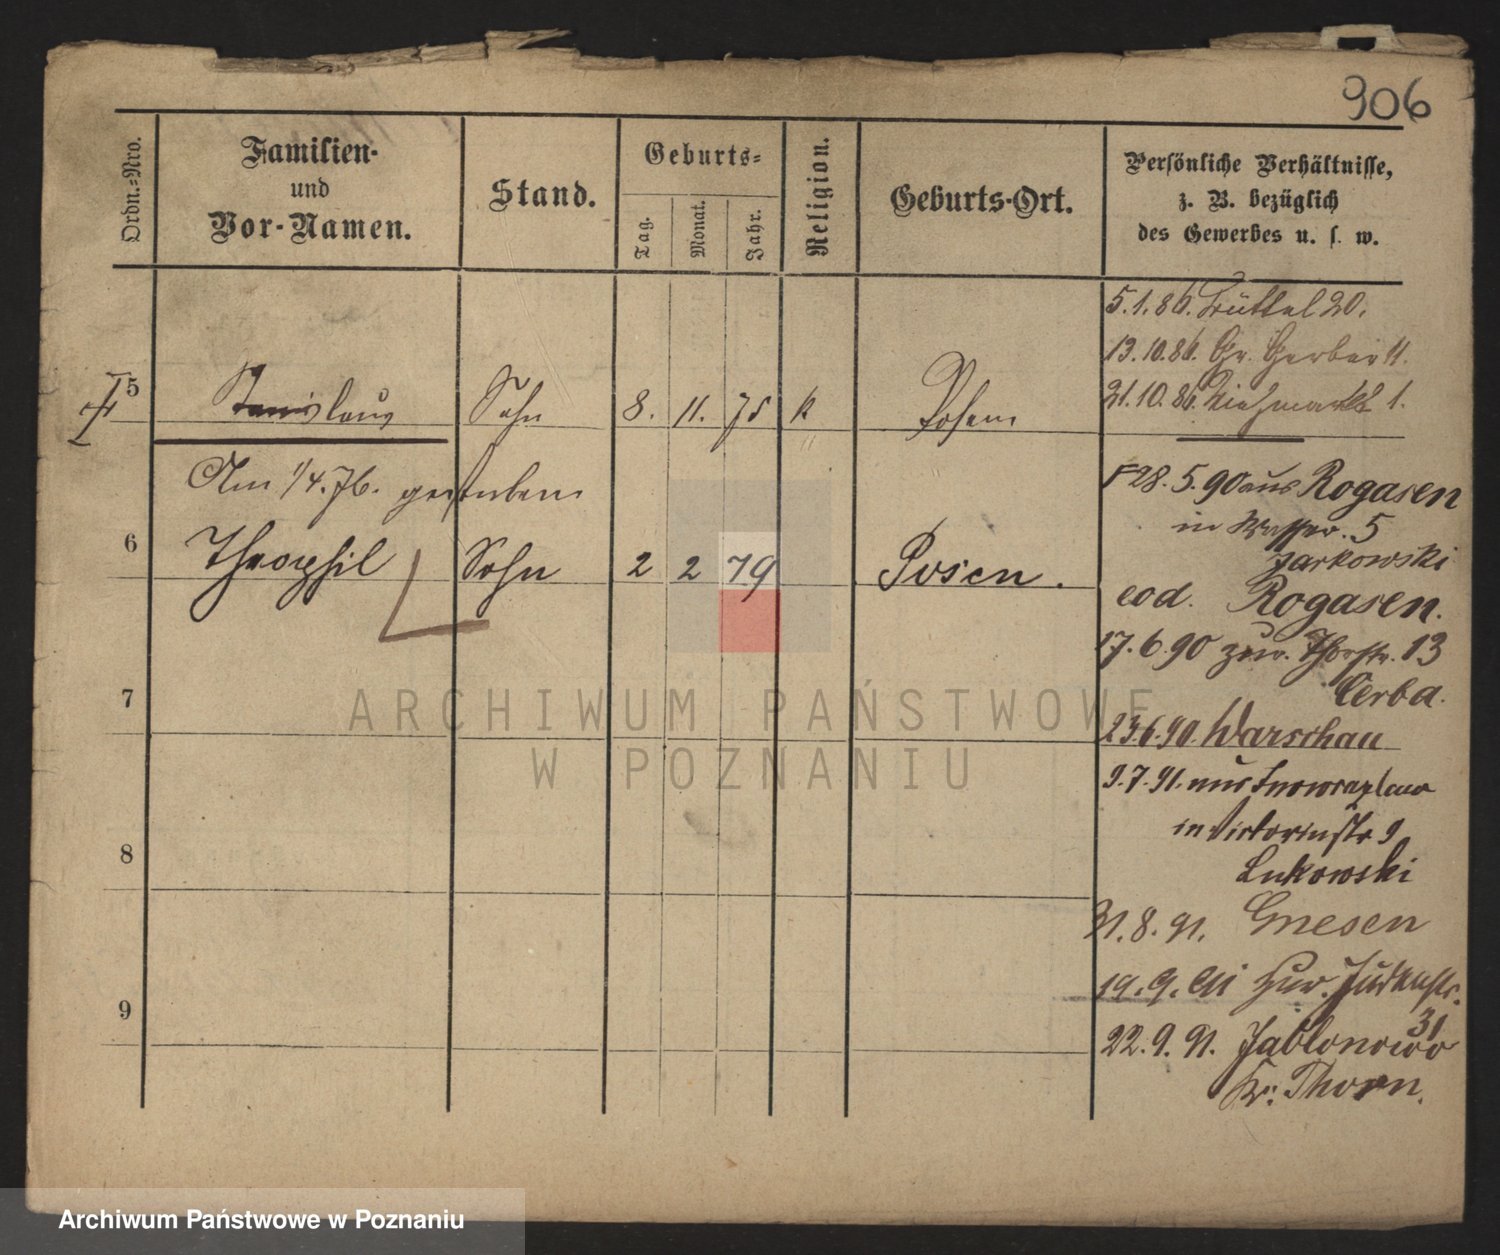 906
Ordn.-Nro.
Familien-
und
Vor-Namen.
Stand.
Geburts-
Tag.
Monat.
Jahr.
Religion.
Geburts-Ort.
Persönliche Verhältnisse,
z. B. bezüglich
des Gewerbes u. s. w.
5.1.86. Büttel 20.
13.10.86. Gr. Gerber 11.
21.10.86. Viehmarkt 1.
5 Stanislaus Sohn 8. 11. 75 k Posen
Am 1/4.76. gestorben
6 Theophil Sohn 2 2 79 Posen.
28.5.90 aus Rogasen
in Wasser. 5
Jarkowski
eod. Rogasen.
17.6.90 zur. Thorstr. 13
Cerba.
23.6.90. Warschau
7
9.7.91. aus Inowrazlaw
in Victoriastr 9
Lukowski
8
31.8.91. Gnesen
19.9.91 zur. Judenstr.
31
9
22.9.91. Jablonowo
Kr. Thorn.
ARCHIWUM PAŃSTWOWE
W POZNANIU
Archiwum Państwowe w Poznaniu